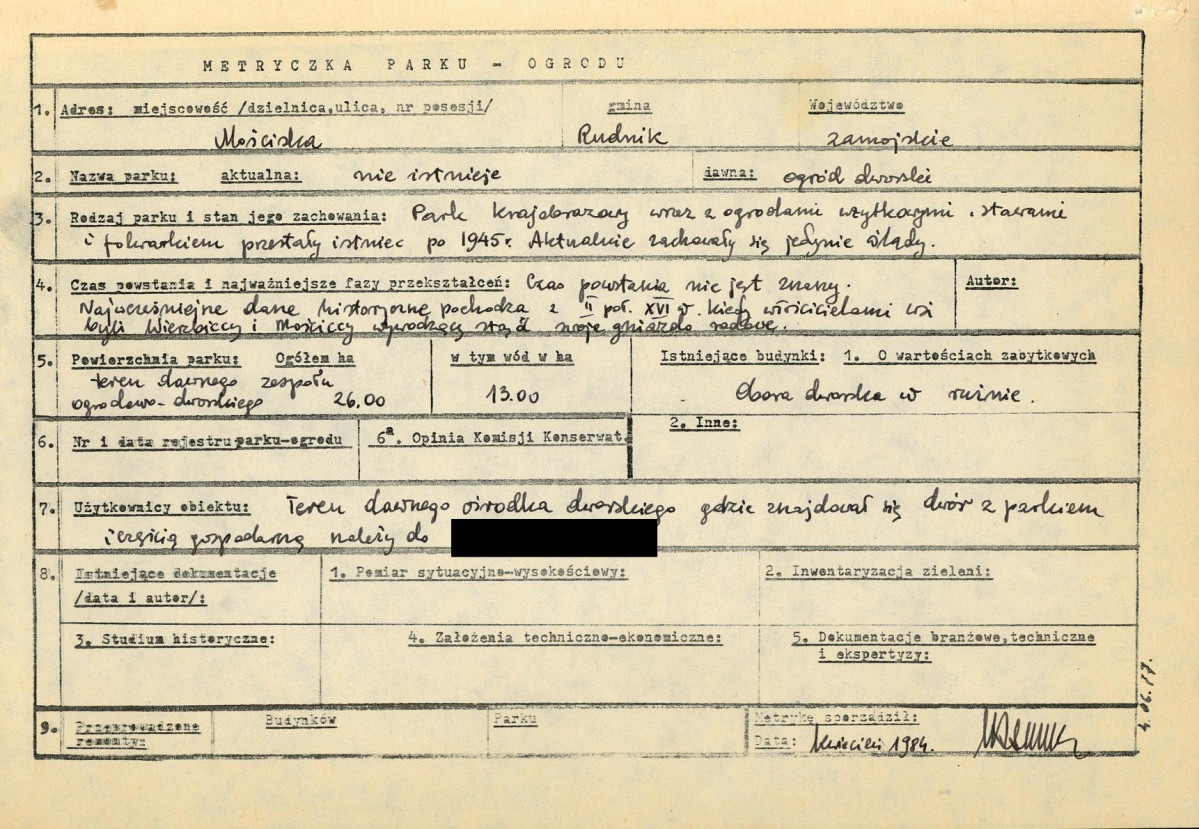 METRYCZKA PARKU - OGRODU
1. Adres: miejscowość /dzielnica,ulica, nr posesji/ gmina Województwo
Mościska Rudnik zamojskie
2. Nazwa parku: aktualna: nie istnieje dawna: ogród dworski
3. Rodzaj parku i stan jego zachowania: Park krajobrazowy wraz z ogrodami użytkowymi, stawami
i folwarkiem przestały istnieć po 1945r. Aktualnie zachowały się jedynie ślady.
4. Czas powstania i najważniejsze fazy przekształceń: Czas powstania nie jest znany. Autor:
Najwcześniejsze dane historyczne pochodzą z II poł. XVI w. kiedy właścicielami wsi
byli Wierzbiccy i Mościccy wywodzący stąd swoje gniazdo rodowe.
5. Powierzchnia parku: Ogółem ha w tym wód w ha Istniejące budynki: 1. O wartościach zabytkowych
teren dawnego zespołu
ogrodowo-dworskiego 26,00 13.00 Obora dworska w ruinie.
2. Inne:
6. Nr i data rejestru parku-ogrodu 6a. Opinia Komisji Konserwat.
7. Użytkownicy obiektu: Teren dawnego ośrodka dworskiego gdzie znajdował się dwór z parkiem
i częścią gospodarczą należy do
8. Istniejące dokumentacje 1. Pomiar sytuacyjno-wysokościowy: 2. Inwentaryzacja zieleni:
/data i autor/:
3. Studium historyczne: 4. Założenia techniczno-ekonomiczne: 5. Dokumentacje branżowe,techniczne
i ekspertyzy:
9. Przeprowadzone remonty: Budynków Parku Metrykę sporządził:
Data: kwiecień 1984.
4.06.77.